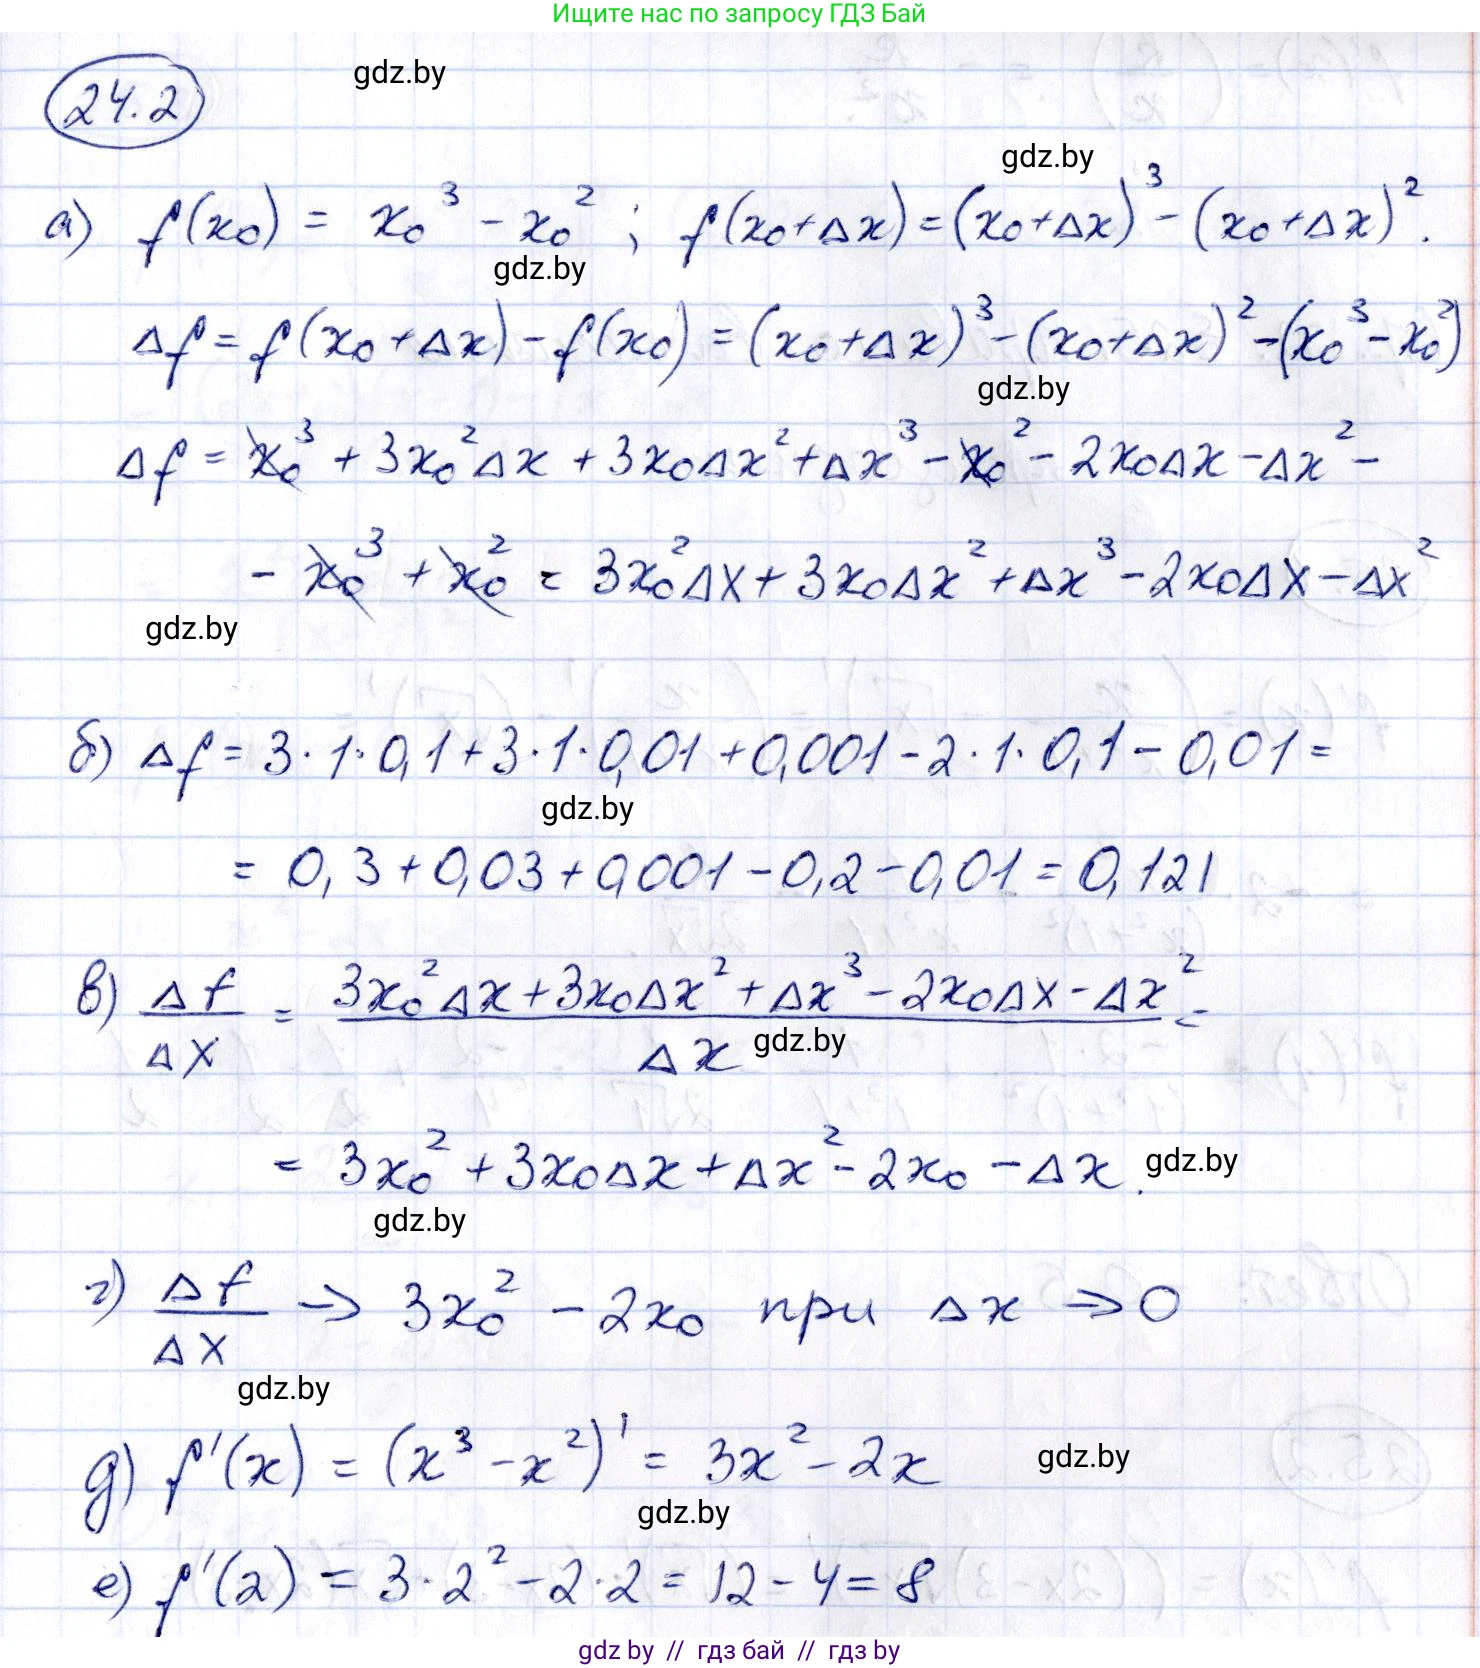 Ищите нас по запросу ГДЗ Бай
24.2
gdz.by
gdz.by
а) f(x₀) = x₀³ - x₀² ; f(x₀+Δx) = (x₀+Δx)³ - (x₀+Δx)².
gdz.by
Δf = f(x₀+Δx) - f(x₀) = (x₀+Δx)³ - (x₀+Δx)² - (x₀³ - x₀²)
gdz.by
Δf = x₀³ + 3x₀²Δx + 3x₀Δx² + Δx³ - x₀² - 2x₀Δx - Δx² -
- x₀³ + x₀² = 3x₀²Δx + 3x₀Δx² + Δx³ - 2x₀Δx - Δx²
gdz.by
б) Δf = 3·1·0,1 + 3·1·0,01 + 0,001 - 2·1·0,1 - 0,01 =
gdz.by
= 0,3 + 0,03 + 0,001 - 0,2 - 0,01 = 0,121
в) Δf/Δx = (3x₀²Δx + 3x₀Δx² + Δx³ - 2x₀Δx - Δx²)/Δx =
gdz.by
= 3x₀² + 3x₀Δx + Δx² - 2x₀ - Δx.
gdz.by
gdz.by
г) Δf/Δx → 3x₀² - 2x₀ при Δx → 0
gdz.by
д) f'(x) = (x³ - x²)' = 3x² - 2x
gdz.by
gdz.by
е) f'(2) = 3·2² - 2·2 = 12 - 4 = 8
gdz.by // гдз бай // гдз by